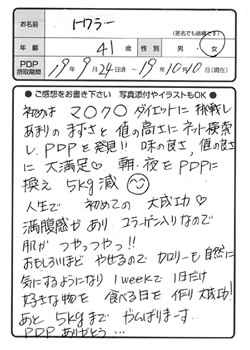 お名前 トワラー
(匿名でも結構です)
年齢 41才 性別 男・女
PDP摂取期間 19年9月24日頃 ~ 19年10月10(現在)
●ご感想をお書き下さい 写真添付やイラストもOK●
初めは マ〇ク〇 ダイエットに 挑戦し
あまりの まずさと 値の高さに ネット検索
し、PDPを発見!! 味の良さ、値の良さ
に 大満足♡ 朝・夜をPDPに
換え 5kg減
人生で 初めての 大成功♡
満腹感があり コラーゲン入りなので
肌が つやっつやっ!!
おもしろいほど やせるので カロリーも自然に
気にするようになり 1weekで 1日だけ
好きな物を 食べる日を 作り 大成功!
あと 5kgまで がんばりまーす
PDP ありがとう…